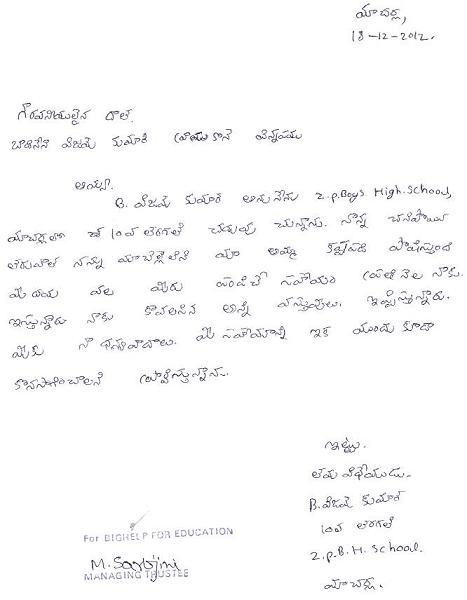 మాచర్ల,
18-12-2012.
గౌరవనీయులైన
విజయ కుమార్ వ్రాయు కొనే విన్నపము
అయ్యా.
B. విజయ కుమార్ అను నేను z.p.Boys High.School,
మాచర్లలో 10వ తరగతి చదువు చున్నాను. నాన్న చనిపోయి
లేరు మా అమ్మ కష్టపడి
మీ దయ వల్ల మీరు పంపించే సహాయం ప్రతి నెల నాకు.
ఇస్తున్నారు నాకు కావలసిన అన్ని వస్తువులు. ఇప్పిస్తున్నారు.
మీకు నా ధన్యవాదాలు. మీ సహాయాన్ని ఇక ముందు కూడా
కొనసాగించాలని ప్రార్థిస్తున్నాను.
ఇట్లు.
తమ విధేయుడు.
B. విజయ కుమార్
10వ తరగతి
z.p.B.H. School.
మాచర్ల.
For BIGHELP FOR EDUCATION
M. Sarojini
MANAGING TRUSTEE